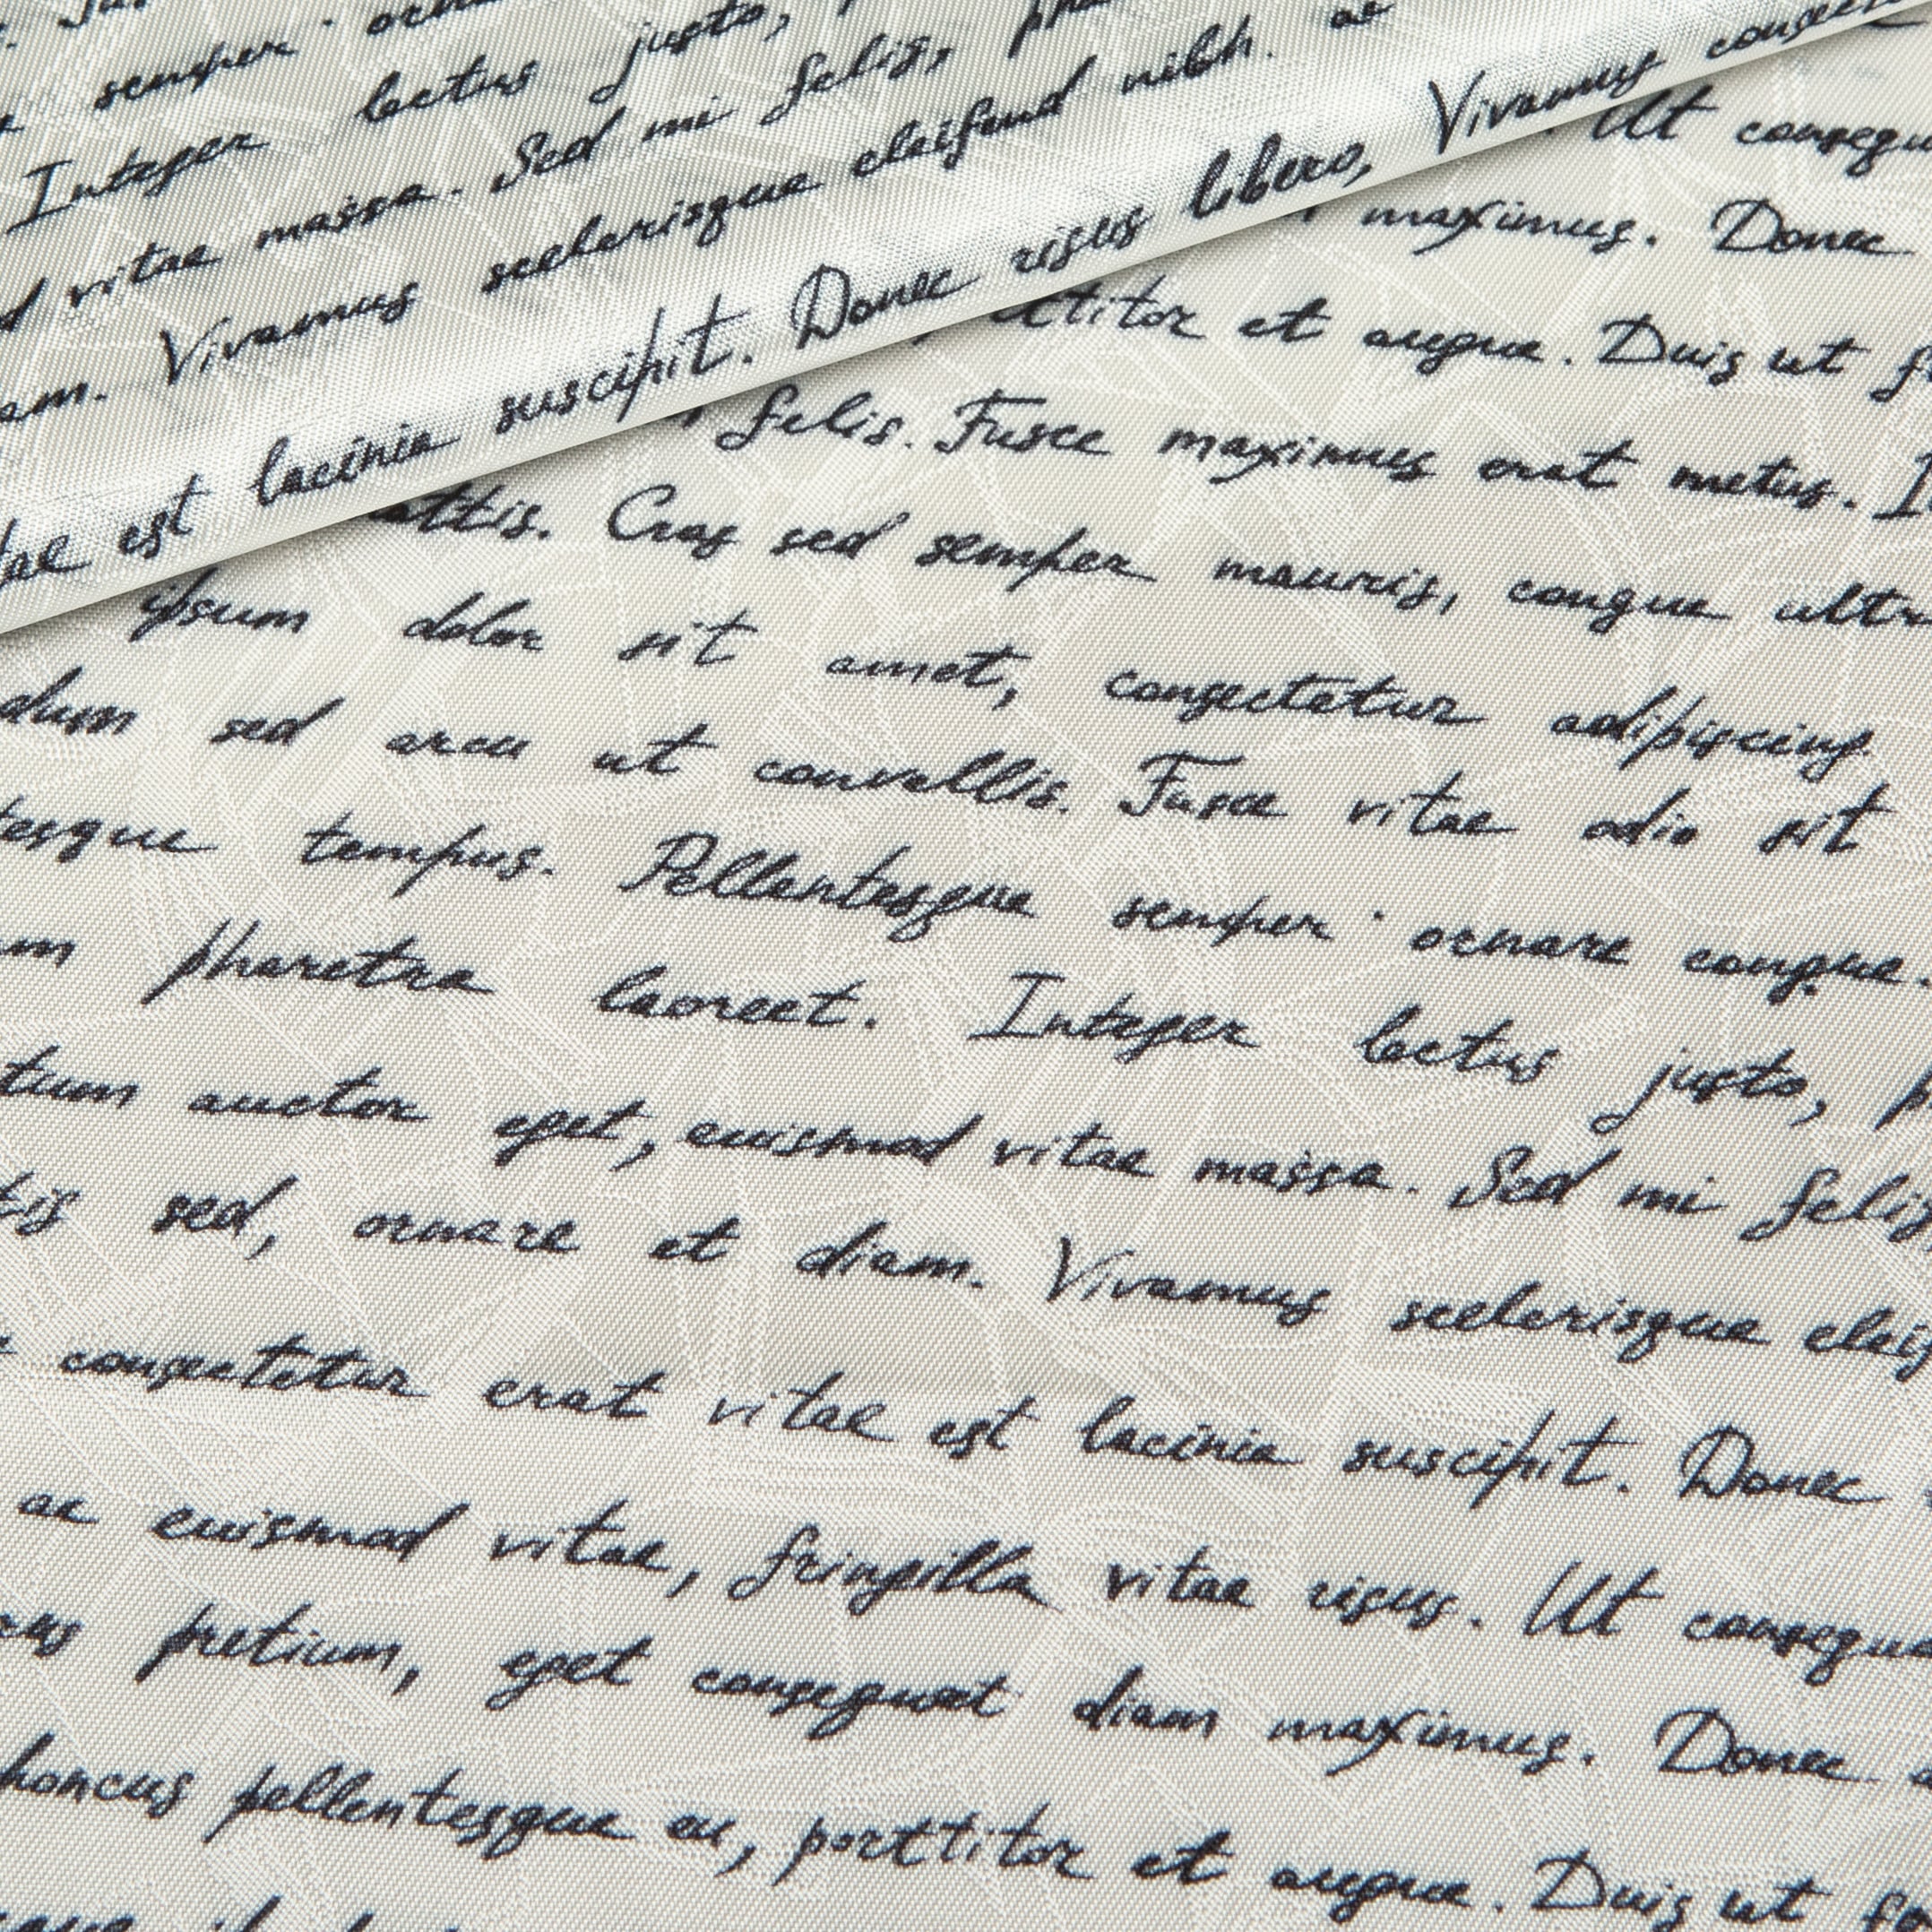 semper ocn
Integer lectus justo,
vitae massa. Sed mi felis, pha
am. Vivamus scelerisque eleifend nibh. ac
tae est lacinia suscipit. Donec risus libero, Vivamus consec
Ut consequ
maximus. Donec
ttitor et augue. Duis ut f
felis. Fusce maximus erat metus. I
attis. Cras sed semper mauris, congue ultr
ipsum dolor sit amet, consectetur adipiscing
dum sed arcu ut convallis. Fusce vitae odio sit
tesque tempus. Pellentesque semper ornare congue.
am pharetra laoreet. Integer lectus justo, p
tum auctor eget, euismod vitae massa. Sed mi felis,
tis sed, ornare et diam. Vivamus scelerisque eleif
consectetur erat vitae est lacinia suscipit. Donec
ac euismod vitae, fringilla vitae risus. Ut consequa
cus pretium, eget consequat diam maximus. Donec
honcus pellentesque eu, porttitor et augue. Duis ut fe